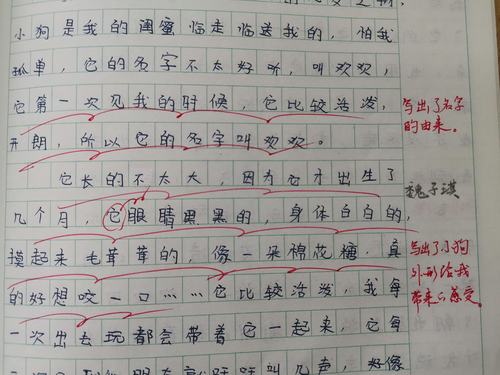 小狗是我的闺蜜临走临送我的，怕我
孤单，它的名字不太好听，叫欢欢，
它第一次见我的时候，它比较活泼，
开朗，所以它的名字叫欢欢。
写出了名字
的由来。
它长的不太大，因为它才出生了
几个月，它眼睛黑黑的，身体白白的，
魏子淇
摸起来毛茸茸的，像一朵棉花糖，真
的好想咬一口……它比较活泼，我每
一次出去玩都会带着它一起来，它每
写出了小狗
外形给我
带来的感受
叫几声，好像